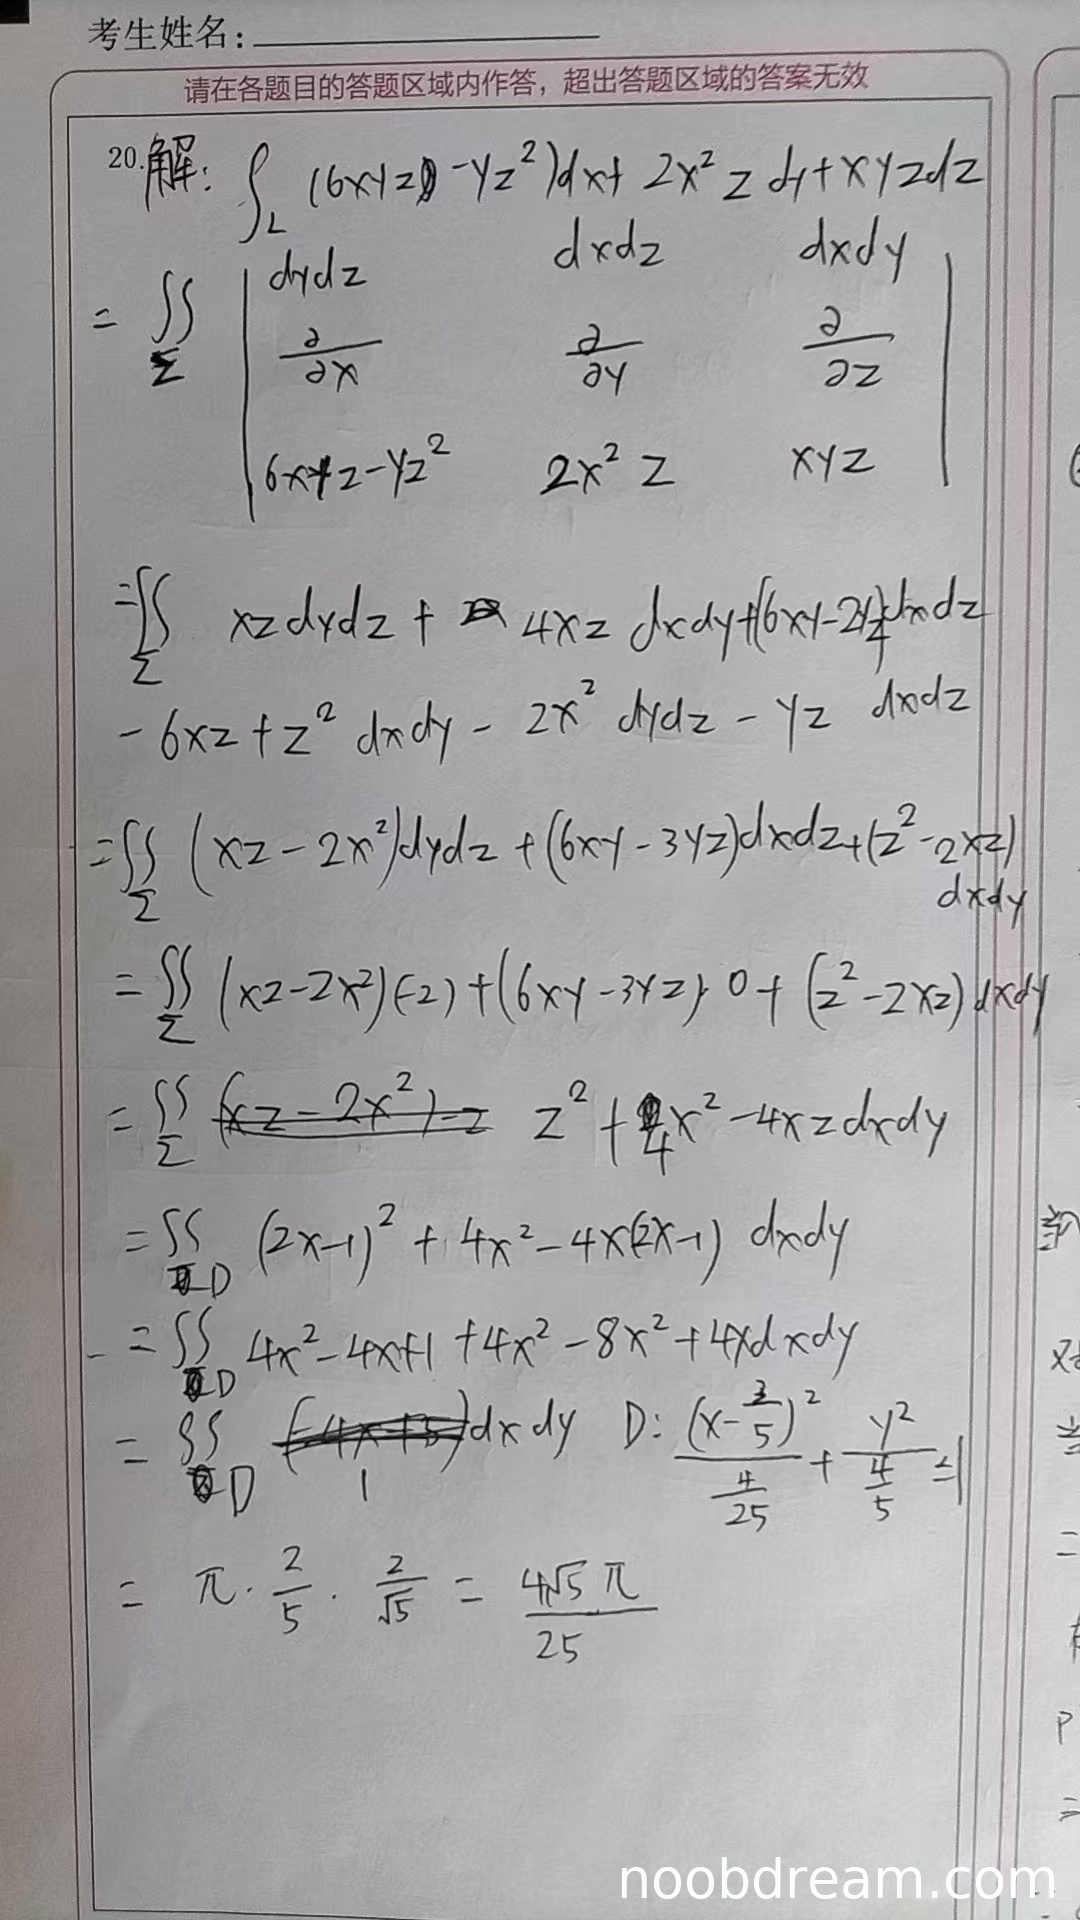 考生姓名:
请在各题目的答题区域内作答，超出答题区域的答案无效
20. 解: ∫_L (6xyz - yz²)dx + 2x²z dy + xyzdz
= ∬_Σ | dydz dxdz dxdy
∂/∂x ∂/∂y ∂/∂z
6xyz-yz² 2x²z xyz |
= ∬_Σ xzdydz + 4xz dxdy + (6xy-2yz)dxdz
- 6xz + z² dxdy - 2x² dydz - yz dxdz
= ∬_Σ (xz-2x²)dydz + (6xy-3yz)dxdz + (z²-2xz)
dxdy
= ∬_Σ (xz-2x²)(-2) + (6xy-3yz)·0 + (z²-2xz)dxdy
= ∬_Σ z² + 4x² - 4xzdxdy
= ∬_D (2x-1)² + 4x² - 4x(2x-1) dxdy
= ∬_D 4x²-4x+1+4x²-8x²+4xdxdy
= ∬_D 1 dxdy D: (x-3/5)²/(4/25) + y²/(4/5) = 1
= π · 2/5 · 2/√5 = 4√5π/25
noobdream.com